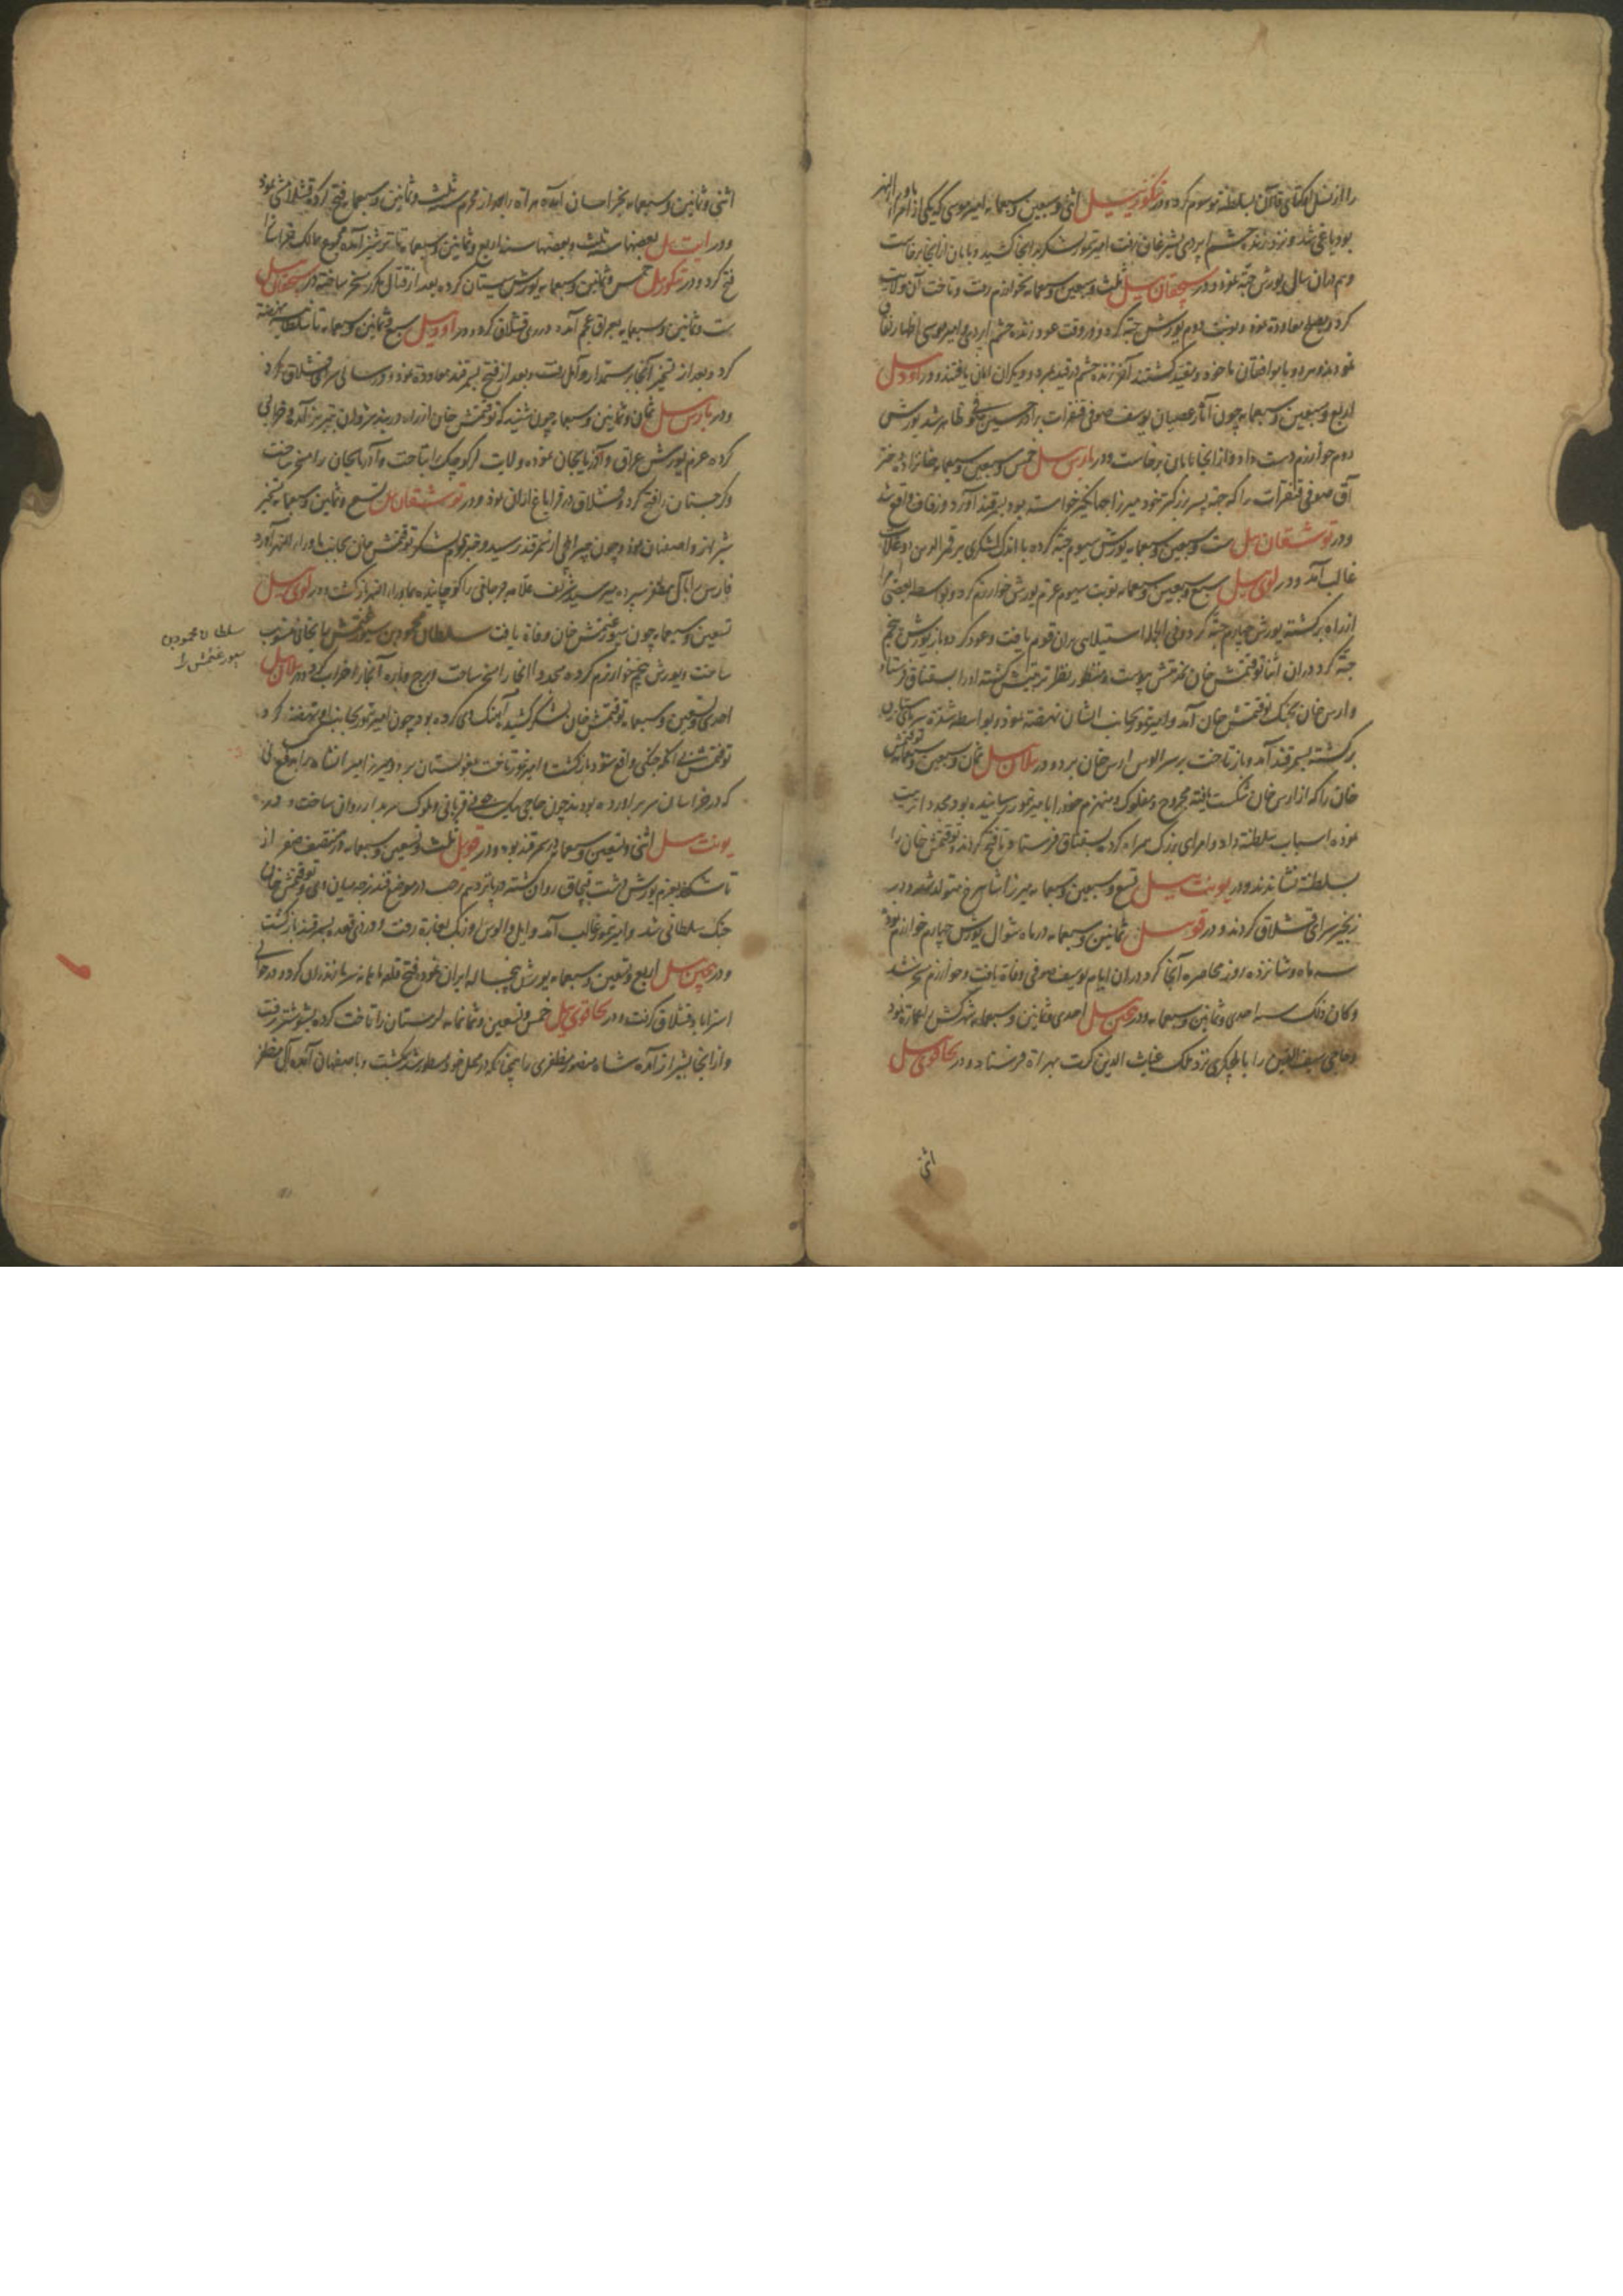 را از نسل اوکتای قاآن بسلطنة موسوم کرد و در تنکوزئیل اثنی و سبعین و سبعمایه امیر موسی که یکی از امراء ماوراءالنهر
بود یاغی شد و نزد زنده حشم اپردی بشبرغان رفت امیر تیمور لشکر بدانجا کشید و بابان از آنجا برخاست
و هم در آن سال یورش جته نمود و در سیچقان ئیل ثلث و سبعین و سبعمایه بخوارزم رفت و تاخت آن ولایت
کرد و بصلح معاودة نمود و نوبت دوم یورش جته کرد و در وقت عود زنده حشم اپردی و امیر موسی اظهار نفاق
نمودند و هر دو با موافقان ماخوذ و مقید گشتند آخر زنده حشم در قید بمرد و دیگران امان یافتند و در اودئیل
اربع و سبعین و سبعمایه چون آثار عصیان یوسف صوفی قنقرات برادر حسین صوفی ظاهر شد یورش
دوم خوارزم دست داد و از آنجا بابان برخاست و در بارس ئیل خمس و سبعین و سبعمایه خانزاده دختر
آق صوفی قنقرات را که جهة پسر بزرگتر خود میرزا جهانگیر خواسته بود بسمرقند آورد و زفاف واقع شد
و در توشقان ئیل ست و سبعین و سبعمایه یورش سیوم جته کرده با اندک لشکری بر قمرالدین دوغلات
غالب آمد و در لوی ئیل سبع و سبعین و سبعمایه نوبت سیوم عزم یورش خوارزم کرد و بواسطه بعضی امرا
از راه برگشته یورش چهارم جته کرد و فی الجمله استیلایی بر آن قوم یافت و عود کرد و باز یورش پنجم
جته کرد در آن اثنا توقتمش خان بخدمتش پیوست و منظور نظر تربیتش گشته او را بسقناق فرستاد
و ارس خان بجنگ توقتمش خان آمد و امیر تیمور بجانب ایشان نهضة نمود و بواسطه شدة سرمای زمستان
برگشته بسمرقند آمد و باز تاخت بر سر الوس ارس خان برد و در ییلان ئیل ثمان و سبعین و سبعمایه توقتمش
خان را که از ارس خان شکست یافته مجروح و مفلوک و منهزم خود را با میر تیمور رسانیده بود مجددا تربیت
نموده اسباب سلطنة داد و امرای بزرگ همراه کرده بسقناق فرستاد تا فتح کردند و توقتمش خان را
بسلطنة نشاندند و در یونت ئیل تسع و سبعین و سبعمایه میرزا شاهرخ متولد شد و در
زنجیر سرای قشلاق کردند و در قوی ئیل ثمانین و سبعمایه در ماه شوال یورش چهارم خوارزم نمود
سه ماه و شانزده روز محاصره آنجا کرد در آن ایام یوسف صوفی وفاة یافت و خوارزم مسخر شد
و کان ذلک سنه احدی و ثمانین و سبعمایه و در بیچین ئیل احدی و ثمانین و سبعمایه شهر کش را عمارة نمود
و حاجی سیف الدین را با یلچیگری نزد ملک غیاث الدین کرت بهراة فرستاد و در تخاقوی ئیل
اثنی
اثنی و ثمانین و سبعمایه بخراسان آمده هراة را بعد از محرم سنه ثلث و ثمانین و سبعمایه فتح کرده قشلامشی نمود
و در ایت ئیل بعضها سنه ثلث و بعضها سنه اربع و ثمانین و سبعمایه تا ترشیز آمده مجموع ممالک خراسانرا
فتح کرد و در تنکوزئیل خمس و ثمانین و سبعمایه یورش سیستان کرده بعد از قتال مکرر مسخر ساخته در سیچقان ئیل
ست و ثمانین و سبعمایه بعراق عجم آمد و در ری قشلاق کرد و در اودئیل سبع و ثمانین و سبعمایه تا سلطانیه نهضة
کرد و بعد از تسخیر آنجا رستمدار و آمل رفت و بعد از فتح بسمرقند معاودة نمود و در سالی سرای قشلاق کرد
و در بارس ئیل ثمان و ثمانین و سبعمایه چون شنید که توقتمش خان از راه دربند شروان بتبریز آمده خرابی
کرده عزم یورش عراق و آذربایجان نموده ولایت لر کوچک را بتاخت و آذربایجان را مسخر ساخت
و گرجستان را فتح کرد و قشلاق در قراباغ اران نمود و در توشقان ئیل تسع و ثمانین و سبعمایه تسخیر
شیراز و اصفهان نمود و چون چپراقچی از سمرقند رسید و خبر هجوم لشکر توقتمش خان بجانب ماوراءالنهر آورد
فارس را بآل مظفر سپرده میر سید شریف علامه جرجانی را کوچانیده بماوراءالنهر بازگشت و در لوی ئیل
تسعین و سبعمایه چون سیورغتمش خان وفاة یافت سلطان محمود بن سیورغتمش را بخانی منصوب
ساخت و یورش پنجم خوارزم کرده مجددا آنجا را مسخر ساخت و برج و باره آنجا را خراب کرد و در ییلان ئیل
احدی و تسعین و سبعمایه توقتمش خان لشکر کشیده آهنگ وی کرده بود چون امیر تیمور بجانب او نهضة کرد
توقتمش بی آنکه جنگی واقع شود بازگشت امیر تیمور تاخت مغولستان برد و میرزا میرانشاه را بدفع
که در خراسان سر برآورده بودند چون حاجی بیک جونی قربانی و ملوک سربدار روان ساخت و در
یونت ئیل اثنی و تسعین و سبعمایه در سمرقند بود و در قوی ئیل ثلث و تسعین و سبعمایه در منتصف صفر از
تاشکند بعزم یورش دشت قبچاق روان گشته در پانزدهم رجب در موضع قندزجه میان وی و توقتمش خان
جنگ سلطانی شد و امیر تیمور غالب آمد و ایل و الوس اوزبک بغارة رفت و در ذی قعده بسمرقند بازگشت
و در بیچین ئیل اربع و تسعین و سبعمایه یورش پنجساله ایران نمود و فتح قلعه ماهانه سر مازندران کرد و در حوالی
استراباد قشلاق گرفت و در تخاقوی ئیل خمس و تسعین و ثمانمایه لرستان را تاخت کرده بشوشتر رفت
و از آنجا بشیراز آمده شاه منصور مظفری را چنانکه در محل خود مسطور شد بکشت و باصفهان آمده آل مظفر
سلطان محمود بن
سیورغتمش را